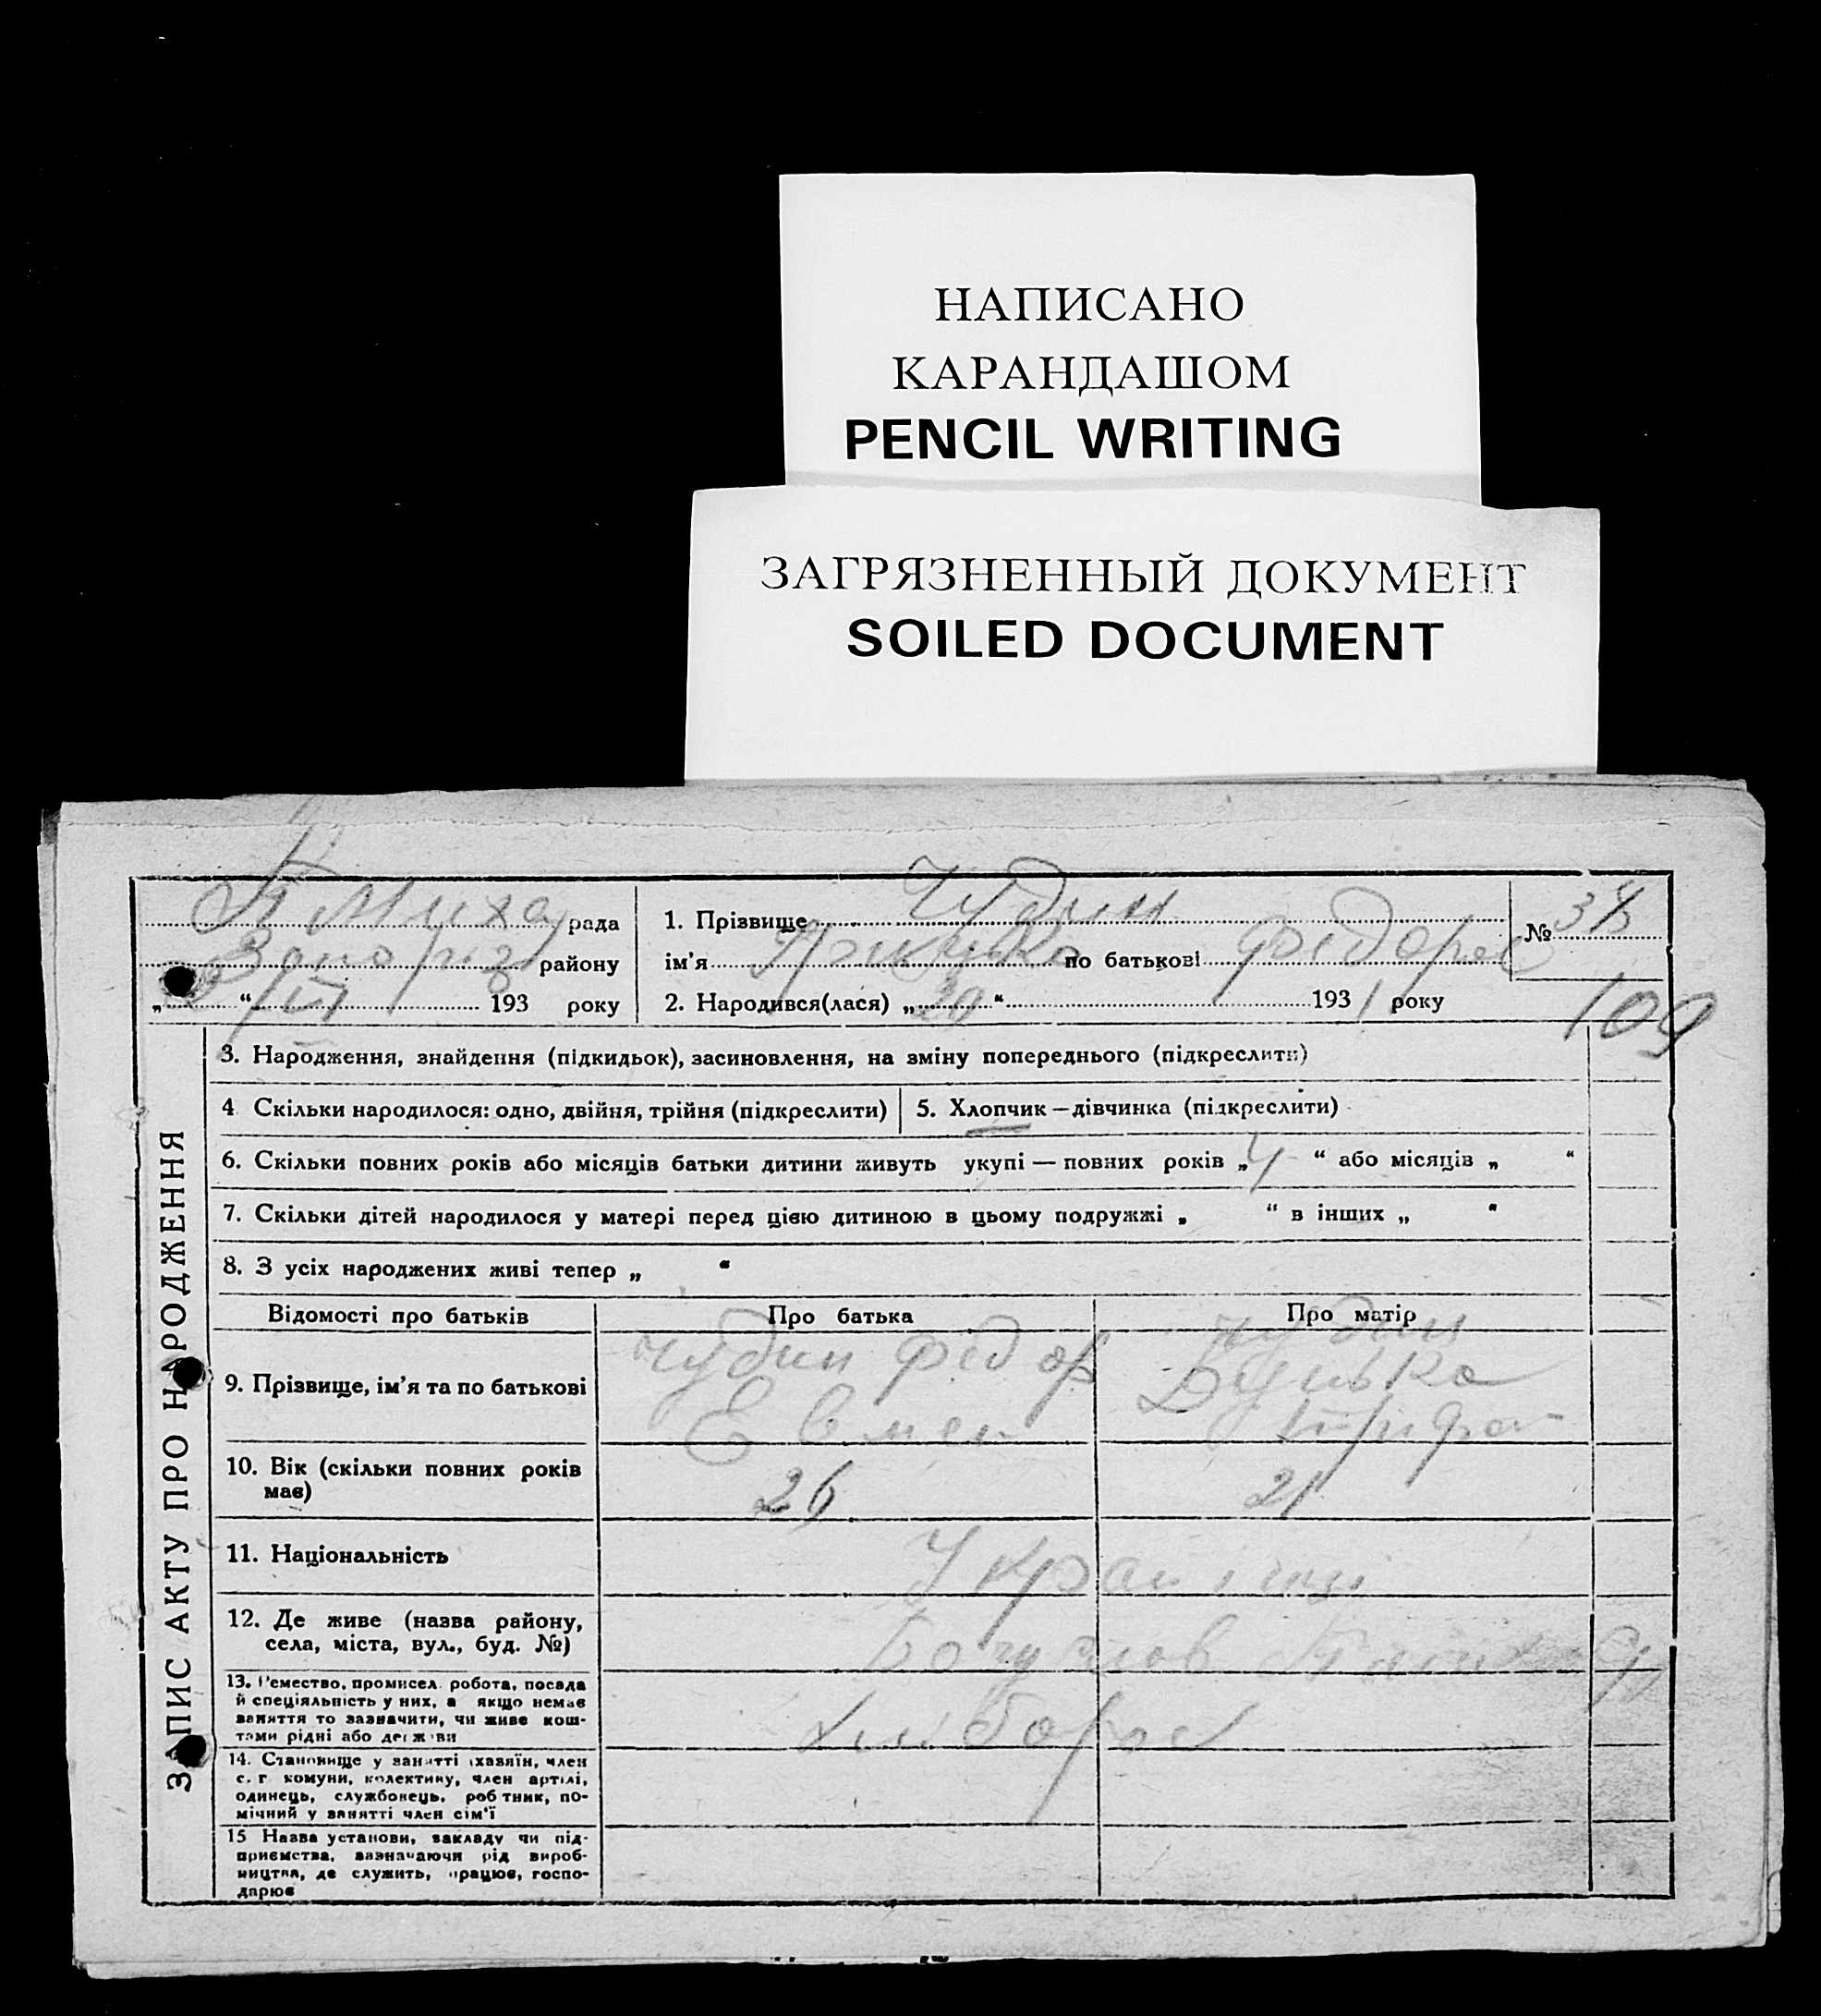 НАПИСАНО
КАРАНДАШОМ
PENCIL WRITING
ЗАГРЯЗНЕННЫЙ ДОКУМЕНТ
SOILED DOCUMENT
рада
району
„ “ 193 року
1. Прізвище Чудин
ім'я по батькові Федорев
2. Народився(лася) „ 20 “ 1931 року
№
109
ЗАПИС АКТУ ПРО НАРОДЖЕННЯ
3. Народження, знайдення (підкидьок), засиновлення, на зміну попереднього (підкреслити)
4 Скільки народилося: одно, двійня, трійня (підкреслити)
5. Хлопчик — дівчинка (підкреслити)
6. Скільки повних років або місяців батьки дитини живуть укупі — повних років „ 4 “ або місяців „ “
7. Скільки дітей народилося у матері перед цією дитиною в цьому подружжі „ “ в інших „ “
8. З усіх народжених живі тепер „ “
Відомості про батьків
Про батька
Про матір
9. Прізвище, ім'я та по батькові
Чудин Федор
Евмен
Чудин
10. Вік (скільки повних років
має)
26
21
11. Національність
Українці
12. Де живе (назва району,
села, міста, вул., буд. №)
13. Ремество, промисел. робота, посада
й спеціяльність у них, а якщо немає
заняття то зазначити, чи живе кош-
тами рідні або держави
хлібороб
14. Становище у занятті (хазяїн, член
с. г комуни, колективу, член артілі,
одинець, службовець, робітник, по-
мічний у занятті член сім'ї
15 Назва установи, закладу чи під-
приємства, зазначаючи рід вироб-
ництва, де служить, працює, госпо-
дарює